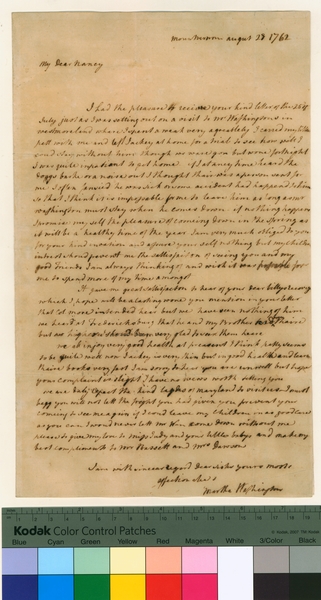 Mount Vernon august 28 1762
My Dear Nancy
I had the pleasure to receive your kind letter of the
July just as I was setting out on a visit to Mr Washingtons in
westmoreland where I spent a weak very agreabley I carred my little
patt with me and left Jackey at home for a trial to see how well I
coud stay without him though we ware gon but wone fortnight
I was quite impatiant to get home if I at aney time heard the
doggs barke or a noise out I thought thair was a person sent for
me I often fansied he was sick or some accident had happend to him
so that I think it is impossible for me to leave him as long as mr
Washington must stay when he comes down if nothing happens
I promise my self the pleasure of comeing down in the spring as
it will be a healthy time of the year I am very much obliged to you
for your kind invation and assure your self nothing but my childrens
intrest should prevent me the sattisfaction of seeing you and my
good friends I am always thinking of and wish it was possable for
me to spend more of my time amongst
It gave me great satisfaction to hear of your dear billys recovery
which I hope will be a lasting wone you mention in your letter
that                         heare but we have seen nothing of him
we heard at Fredericksburg that he and my Brother
very
we all injoy very good health at preasent I think patty seems
to be quite well now Jackey is very thin but in good health and
thaire books very fast I am sorry to hear you are unwell but hope
your complaint is slight I have no news worth telling you
we are daly expect the kind laydes of maryland to visit us I must
begg you will not lett the fright you had given you prevent your
comeing to see me again if I coud leave my children in as good care
as you can I would never let Mr W come down without me
please to give my love to miss Judy and your little babys and make my
best compliments to Mr Bassett and mrs Dawson
I am with sincear regard dear sister yours most
affectionately
Martha Washington
Kodak Color Control Patches
Blue Cyan Green Yellow Red Magenta White 3/Color Black